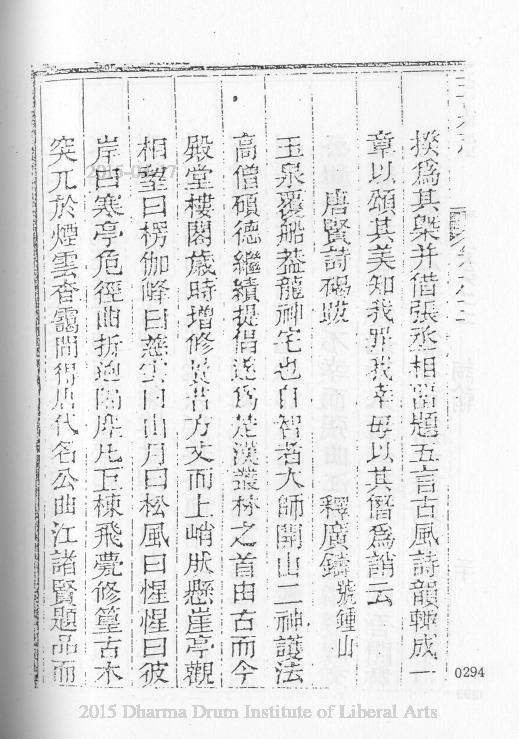 揆爲其槩并借張丞相留題五言古風詩韻輙成一
章以頌其美知我罪我幸毋以其僭爲誚云
唐賢詩碣跋 釋廣鑄號鍾山
玉泉覆船葢龍神宅也自智者大師開山二神護法
高僧碩德繼續提倡遂爲楚漢叢林之首由古而今
殿堂樓閣歲時增修其若方丈而上峭朕懸崖亭觀
相望曰楞伽峰曰慈雲曰山月曰松風曰惺惺曰彼
岸曰寒亭危徑曲折 巨棟飛甍修篁古木
突兀於煙雲杳靄間得唐代名公曲江諸賢題品而
0294
2015-03-17
2015 Dharma Drum Institute of Liberal Arts